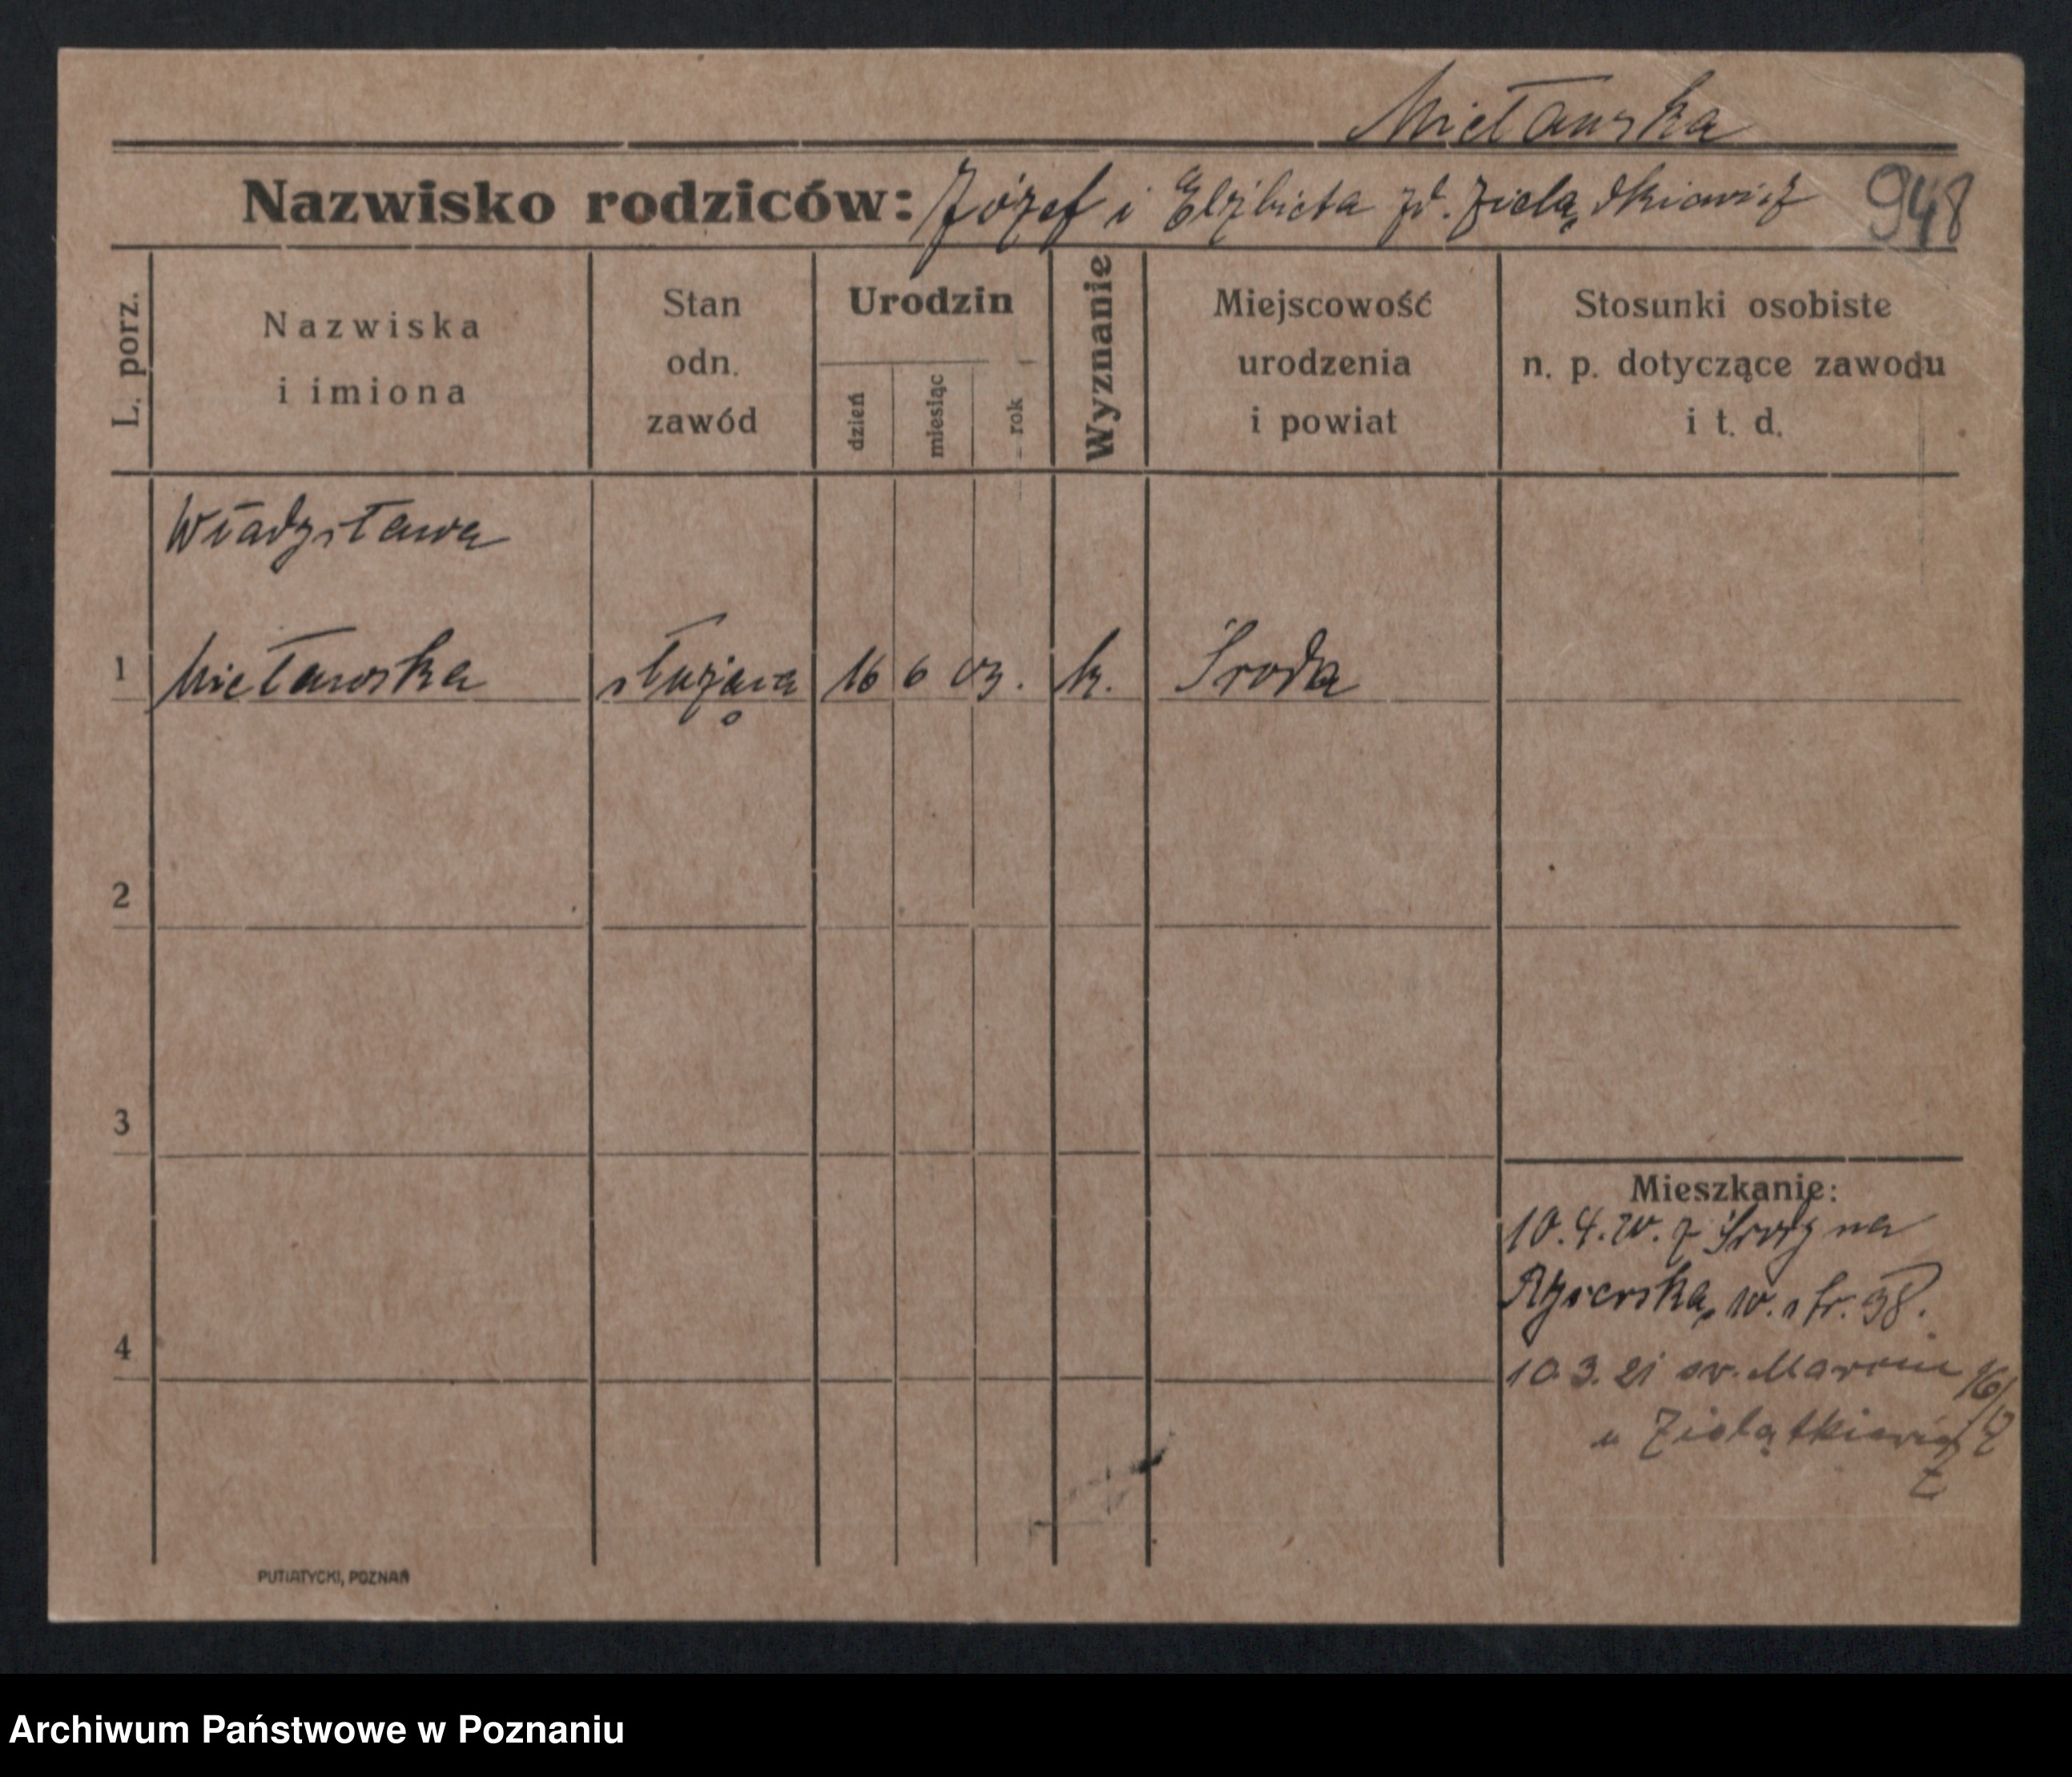 Miełcarska
Nazwisko rodziców: Józef i Elżbieta zd. Zielądkiewicz 948
L. porz.
Nazwiska
i imiona
Stan
odn.
zawód
Urodzin
dzień
miesiąc
rok
Wyznanie
Miejscowość
urodzenia
i powiat
Stosunki osobiste
n. p. dotyczące zawodu
i t. d.
Władysława
1 służąca 16 6 03. k. Środa
2
3
Mieszkanie:
10.4.20. z Środy na
4
10.3.21 św. Marcin
u Zielątkiewicz
PUTIATYCKI, POZNAŃ
Archiwum Państwowe w Poznaniu